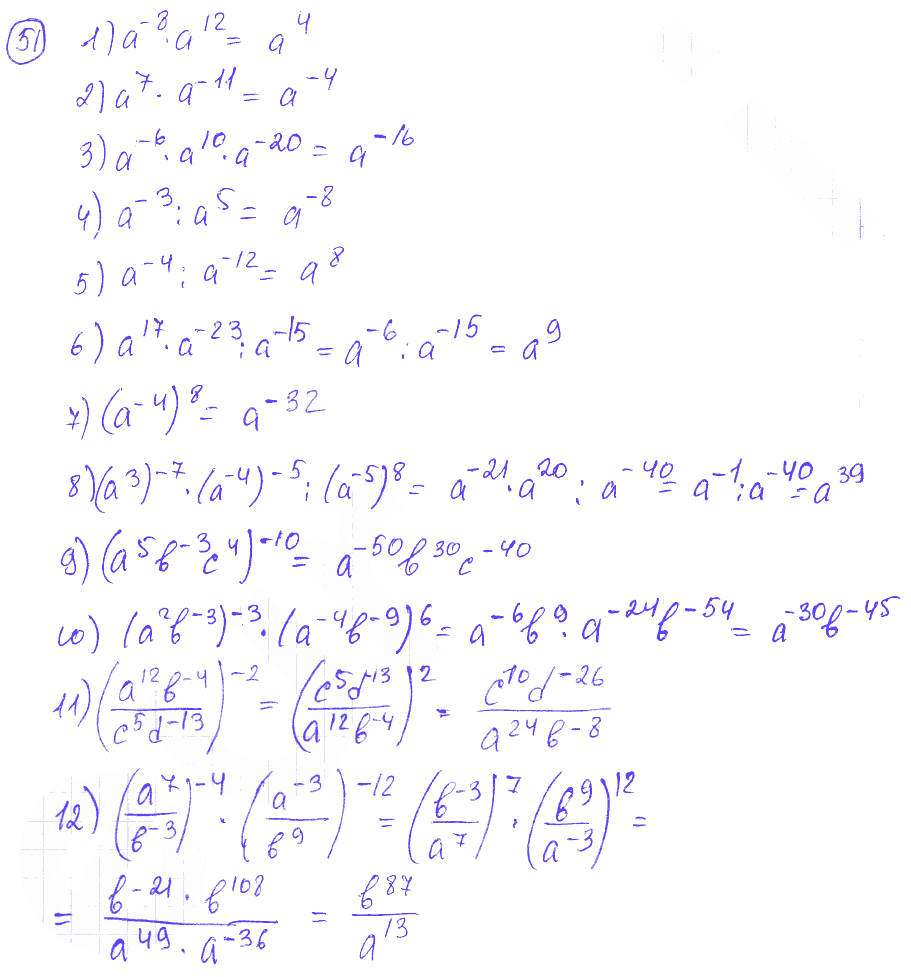 51 1) a⁻⁸ · a¹² = a⁴
2) a⁷ · a⁻¹¹ = a⁻⁴
3) a⁻⁶ · a¹⁰ · a⁻²⁰ = a⁻¹⁶
4) a⁻³ : a⁵ = a⁻⁸
5) a⁻⁴ : a⁻¹² = a⁸
6) a¹⁷ · a⁻²³ : a⁻¹⁵ = a⁻⁶ : a⁻¹⁵ = a⁹
7) (a⁻⁴)⁸ = a⁻³²
8) (a³)⁻⁷ · (a⁻⁴)⁻⁵ : (a⁻⁵)⁸ = a⁻²¹ · a²⁰ : a⁻⁴⁰ = a⁻¹ : a⁻⁴⁰ = a³⁹
9) (a⁵b⁻³c⁴)⁻¹⁰ = a⁻⁵⁰b³⁰c⁻⁴⁰
10) (a²b⁻³)⁻³ · (a⁻⁴b⁻⁹)⁶ = a⁻⁶b⁹ · a⁻²⁴b⁻⁵⁴ = a⁻³⁰b⁻⁴⁵
11) (a¹²b⁻⁴/c⁵d⁻¹³)⁻² = (c⁵d⁻¹³/a¹²b⁻⁴)² = c¹⁰d⁻²⁶/a²⁴b⁻⁸
12) (a⁷/b⁻³)⁻⁴ · (a⁻³/b⁹)⁻¹² = (b⁻³/a⁷)⁷ · (b⁹/a⁻³)¹² =
= b⁻²¹ · b¹⁰⁸/a⁴⁹ · a⁻³⁶ = b⁸⁷/a¹³